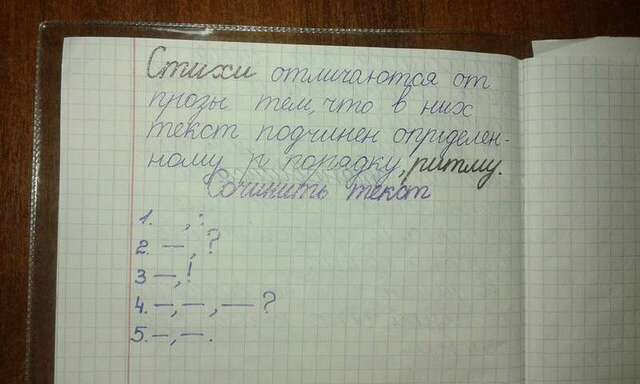 Стихи отличаются от
прозы тем, что в них
текст подчинен определен-
ному п порядку, ритму.
Сочинить текст
1. , :
2. —, ?
3 —, !
4. —, —, — ?
5. —, —.